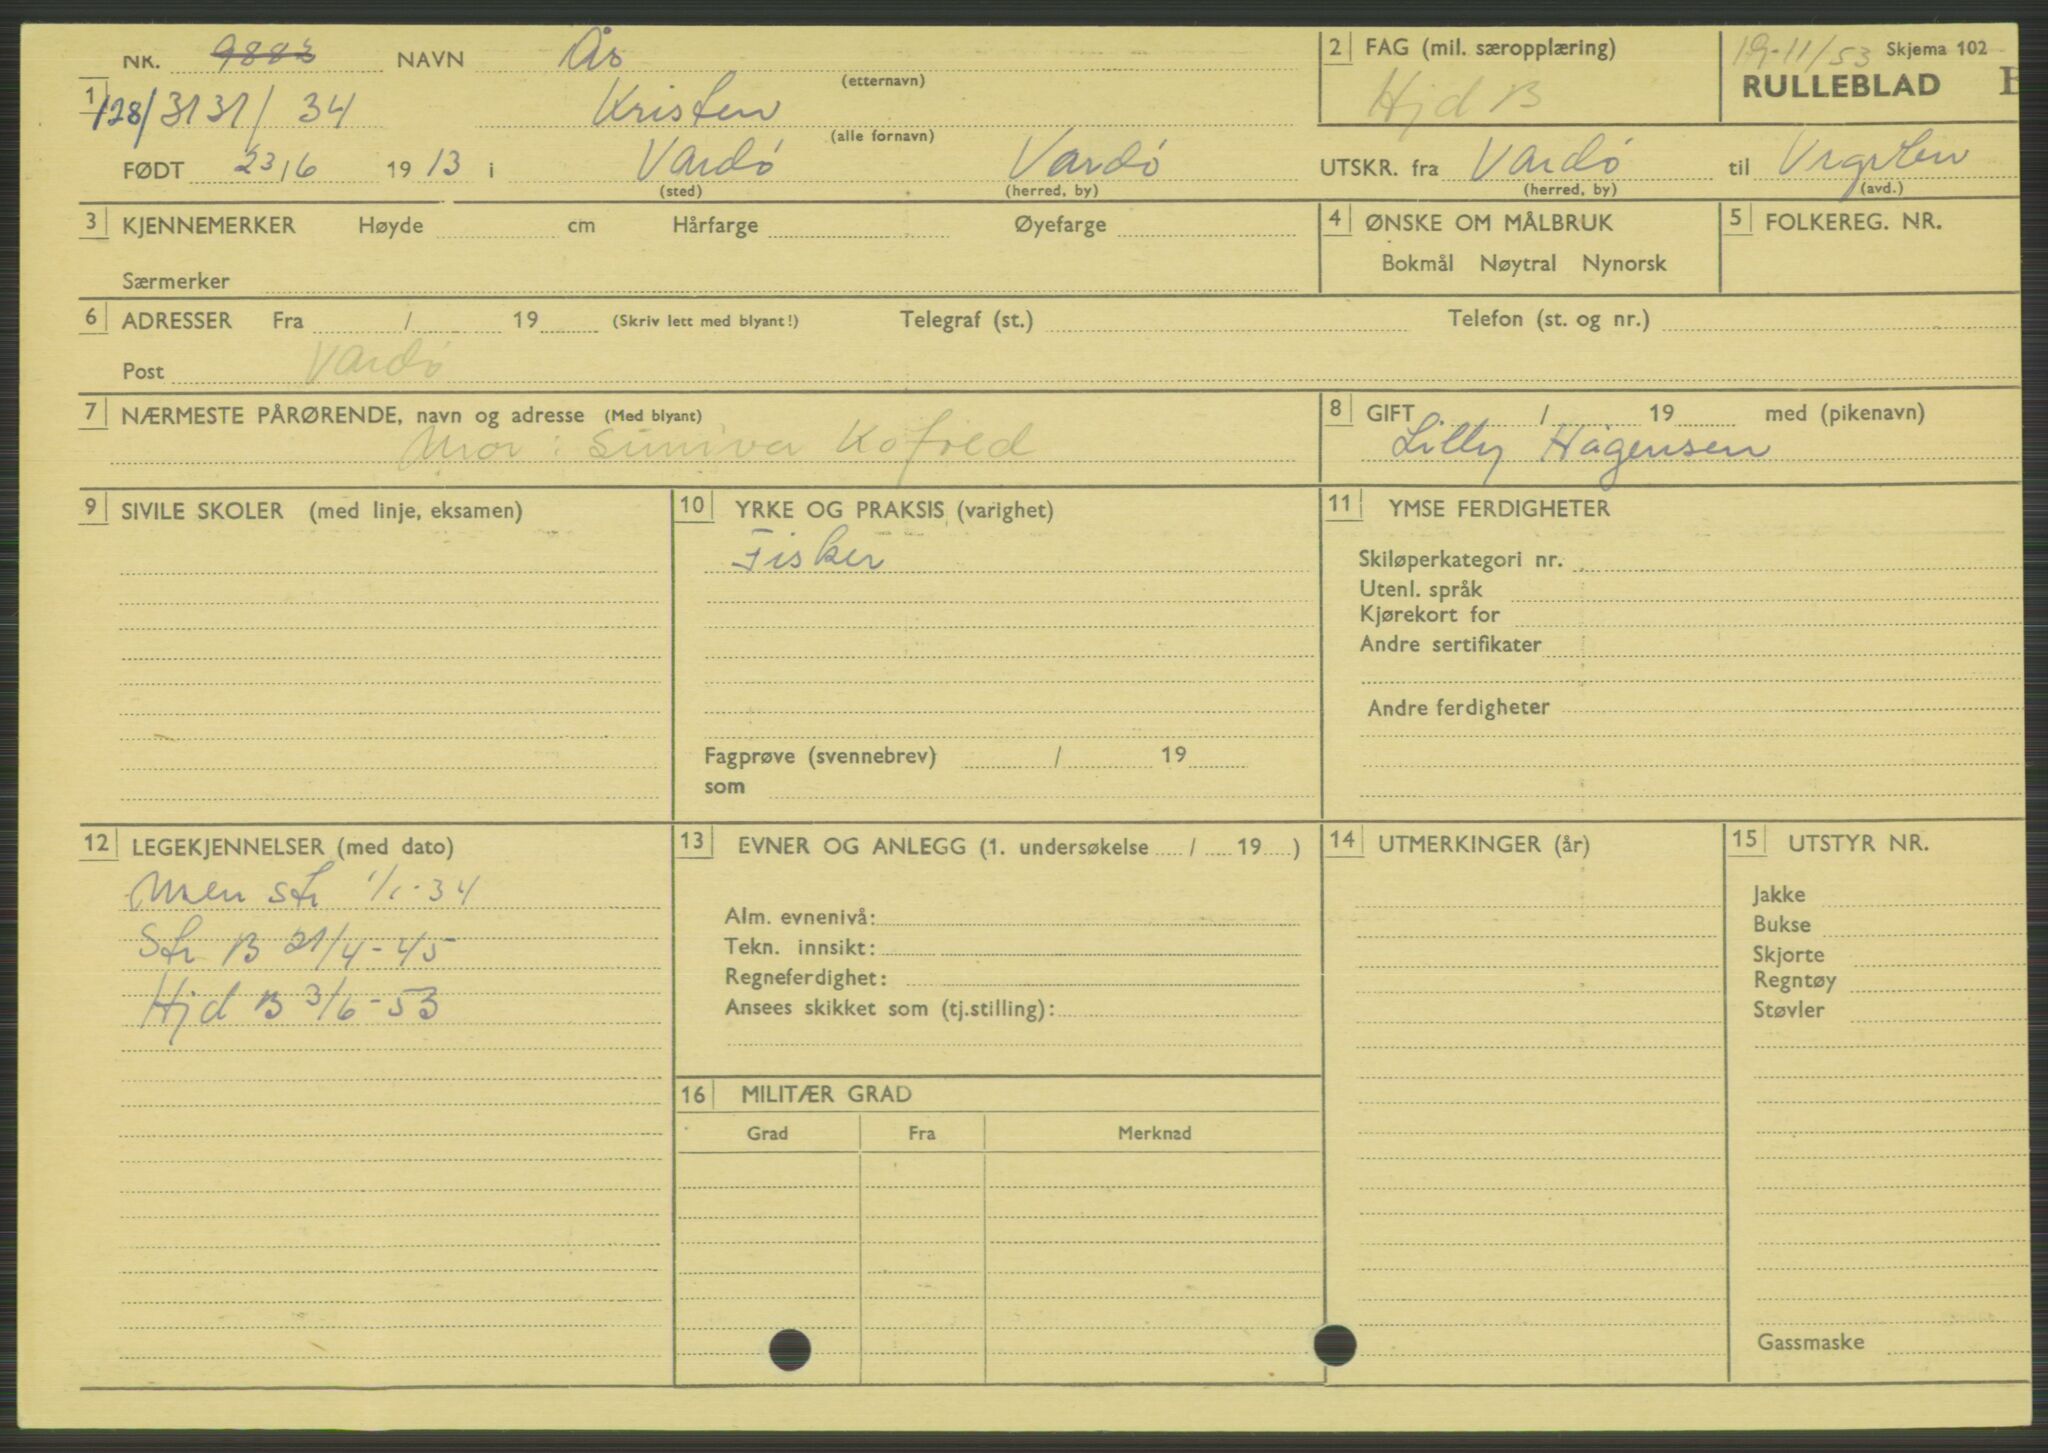 NR. 9803 NAVN Ås 2 FAG (mil. særopplæring) 19-11/53 Skjema 102
(etternavn) RULLEBLAD
1 128/3131/34 Kristen Hjd B
(alle fornavn)
FØDT 23/6 1913 i Vardö Vardö UTSKR. fra Vardö til
(sted) (herred, by) (herred, by) (avd.)
3 KJENNEMERKER Høyde cm Hårfarge Øyefarge 4 ØNSKE OM MÅLBRUK 5 FOLKEREG. NR.
Bokmål Nøytral Nynorsk
Særmerker
6 ADRESSER Fra / 19 (Skriv lett med blyant!) Telegraf (st.) Telefon (st. og nr.)
Post Vardö
7 NÆRMESTE PÅRØRENDE, navn og adresse (Med blyant) 8 GIFT / 19 med (pikenavn)
Mor: Suniva Kofoed Lilly Hågensen
9 SIVILE SKOLER (med linje, eksamen) 10 YRKE OG PRAKSIS (varighet) 11 YMSE FERDIGHETER
Fisker Skiløperkategori nr.
Utenl. språk
Kjørekort for
Andre sertifikater
Andre ferdigheter
Fagprøve (svennebrev) / 19
som
12 LEGEKJENNELSER (med dato) 13 EVNER OG ANLEGG (1. undersøkelse / 19 ) 14 UTMERKINGER (år) 15 UTSTYR NR.
Men str 1/1-34 Jakke
Alm. evnenivå: Bukse
Str B 21/4-45 Tekn. innsikt: Skjorte
Regneferdighet: Regntøy
Hjd B 3/6-53 Ansees skikket som (tj.stilling): Støvler
16 MILITÆR GRAD
Grad Fra Merknad
Gassmaske